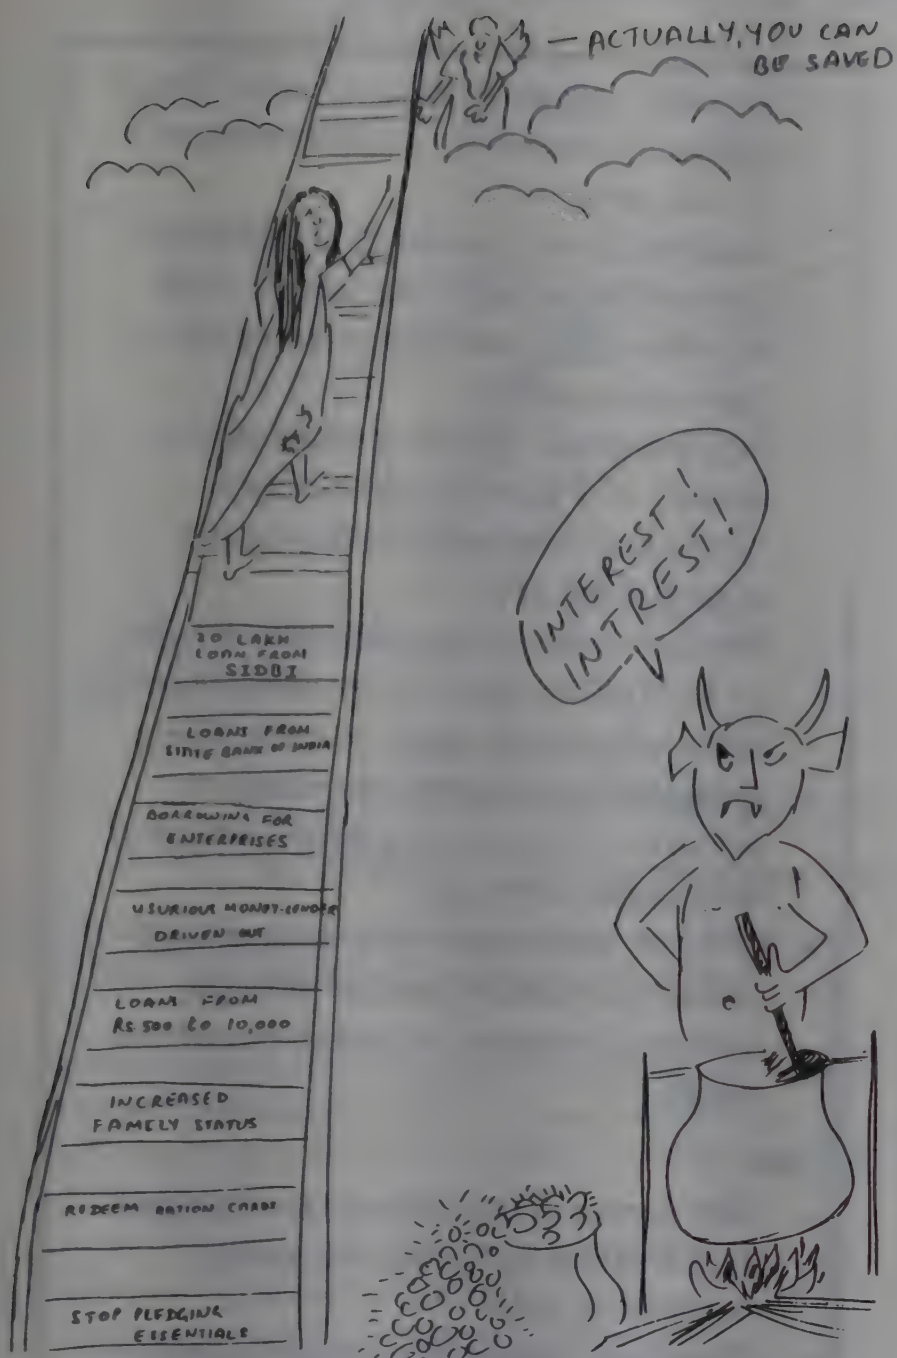 — ACTUALLY, YOU CAN
BE SAVED
INTEREST!
INTREST!
20 LAKH
LOAN FROM
SIDBI
LOANS FROM
STATE BANK OF INDIA
BORROWING FOR
ENTERPRISES
USURIOUS MONEY-LENDER
DRIVEN OUT
LOANS FROM
Rs 500 to 10,000
INCREASED
FAMELY STATUS
REDEEM RATION CARDS
STOP PLEDGING
ESSENTIALS